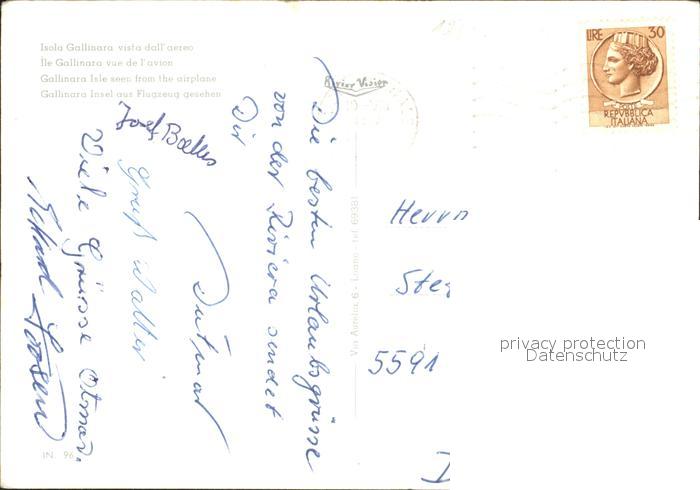 Isola Gallinara vista dall'aereo
Île Gallinara vue de l'avion
Gallinara Isle seen from the airplane
Gallinara Insel aus Flugzeug gesehen
LIRE 30
POSTE
REPVBBLICA
ITALIANA
Die besten Urlaubsgrüsse
von der Riviera sendet
Dir
Gruß Walter
Viele Grüsse Otmar.
Josef
Via Aurelia, 6 - Loano - tel. 69381
Herrn
5591
privacy protection
Datenschutz
IN. 96